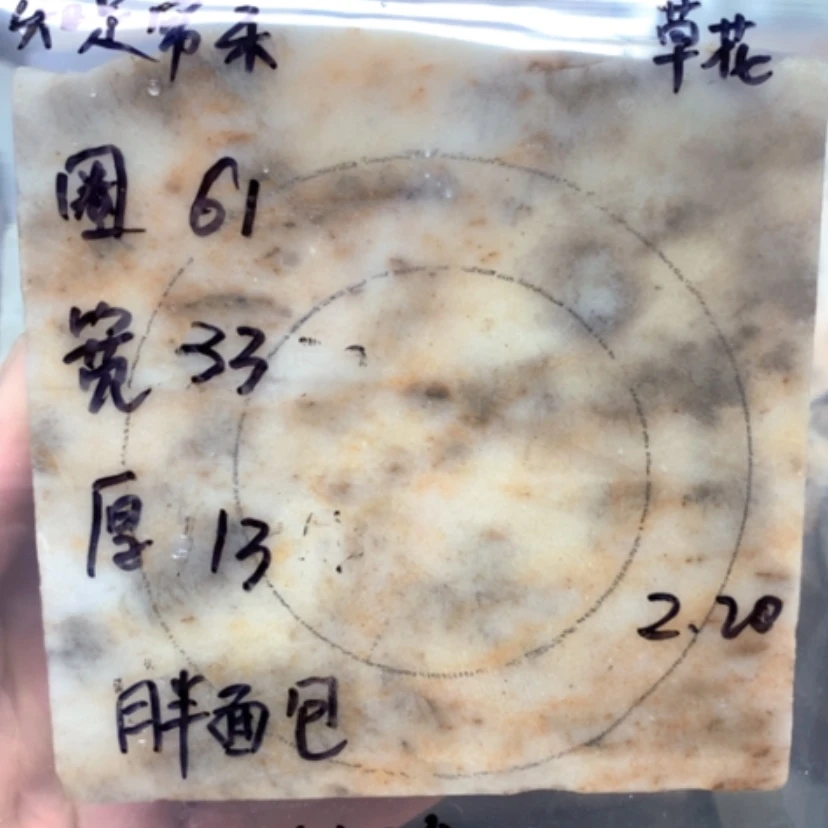 是常乐 草花
圈 61
宽 33
厚 13
2.20
胖面包